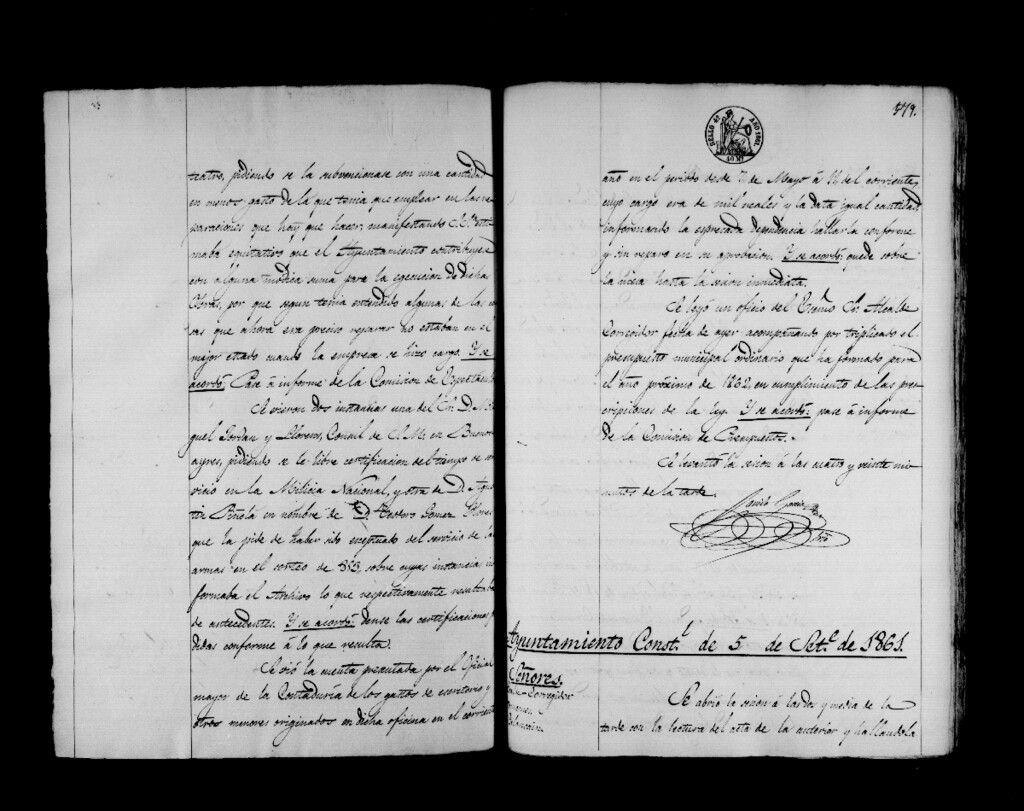 teatro, pidiendo se la subvencionase con una cantidad
en menos gasto de la que tenia que emplear en las re
paraciones que hay que hacer; manifestando S. Sª esti
maba equitativo que el Ayuntamiento contribuyera
con alguna módica suma para la egecucion de dichas
Obras, por que segun tenia entendido algunas de las co
sas que ahora era preciso reparar no estaban en el
mejor estado cuando la empresa se hizo cargo. Y se
acordó: Pase á informe de la Comision de Espectáculos
Se vieron dos instancias una del Sr. D. Mi
guel Jordan y Llorens, Consul de S. M. en Buenos
ayres, pidiendo se le libre certificacion del tiempo de ser
vicio en la Milicia Nacional, y otra de D. Agus
tin en nombre de D. Teodoro Gomez
que la pide de haber sido esceptuado del servicio de las
armas en el sorteo de 853, sobre cuyas instancias in
formaba el Archivo lo que respectivamente resultaba
de antecedentes. Y se acordó: dense las certificaciones pe
didas conforme á lo que resulta.
Se vió la cuenta presentada por el Oficial
mayor de la Contaduría de los gastos de escritorio y
otros menores originados en dicha oficina en el corriente
SELLO 4º AÑO 1861.
40 Ms
479.
año en el periodo desde 7 de Mayo á 16 del corriente,
cuyo cargo era de mil reales y la data igual cantidad,
informando la espresada dependencia hallarla conforme
y sin reparo en su aprobacion. Y se acordó: quede sobre
la mesa hasta la sesion inmediata.
Se leyó un oficio del Excmo Sr. Alcalde
Corregidor fecha de ayer acompañando por triplicado el
presupuesto municipal ordinario que ha formado para
el año próximo de 1862, en cumplimiento de las pres
cripciones de la ley. Y se acordó: pase á informe
de la Comision de Presupuestos.
Se levantó la sesion á las cuatro y veinte mi
nutos de la tarde.
Ayuntamiento Const.l de 5 de Set.e de 1861.
Señores.
Corregidor
Se abrió la sesion á las dos y media de la
tarde con la lectura del acta de la anterior y hallandola